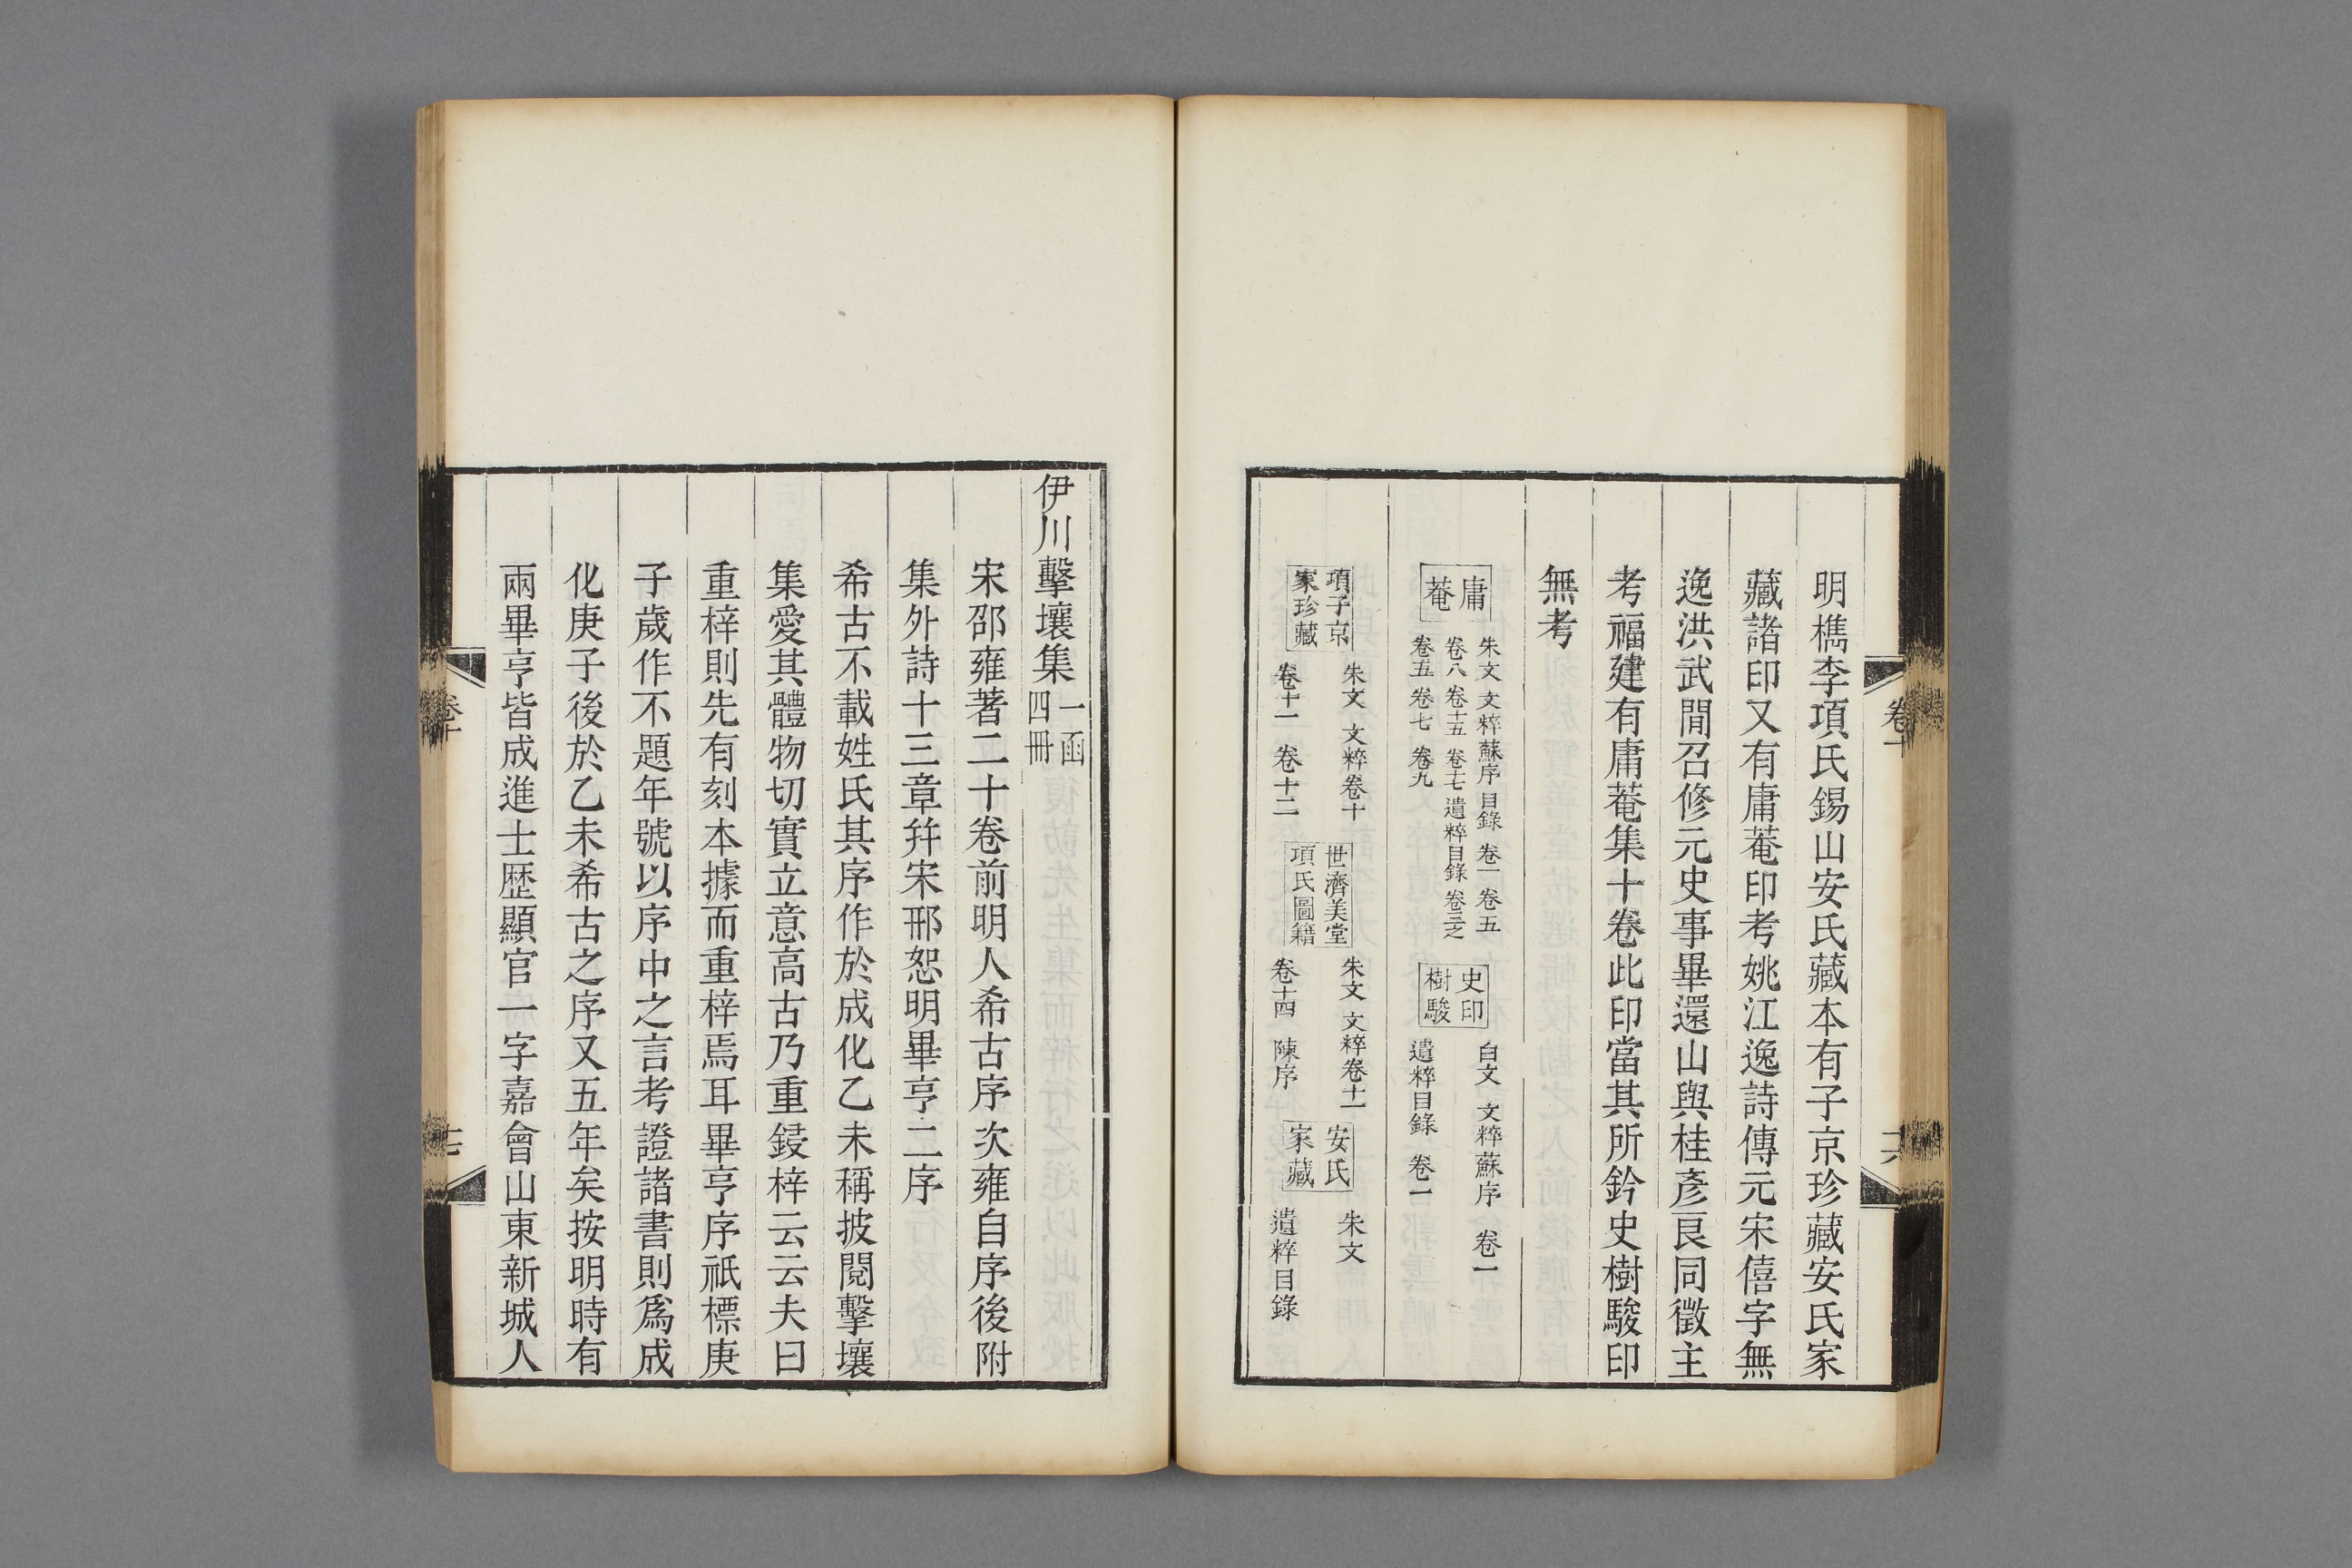 明檇李項氏錫山安氏藏本有子京珍藏安氏家
藏諸印又有庸菴印考姚江逸詩傳元宋僖字無
逸洪武閒召修元史事畢還山與桂彥良同徵主
考福建有庸菴集十卷此印當其所鈐史樹駿印
無考
庸菴
朱文 文粹蘇序 目錄 卷一 卷五
卷八 卷十五 卷十七 遺粹目錄 卷三之
卷五 卷七 卷九
史印樹駿
白文 文粹蘇序 卷一
遺粹目錄 卷一
項子京家珍藏
朱文 文粹卷十
卷十一 卷十二
世濟美堂項氏圖籍
朱文 文粹卷十一
卷十四 陳序
安氏家藏
朱文
遺粹目錄
卷十
十六
伊川擊壤集 一函四冊
宋邵雍著二十卷前明人希古序次雍自序後附
集外詩十三章幷宋邢恕明畢亨二序
希古不載姓氏其序作於成化乙未稱披閱擊壤
集愛其體物切實立意高古乃重鋟梓云云夫曰
重梓則先有刻本據而重梓焉耳畢亨序祇標庚
子歲作不題年號以序中之言考證諸書則爲成
化庚子後於乙未希古之序又五年矣按明時有
兩畢亨皆成進士歷顯官一字嘉會山東新城人
卷十
十七